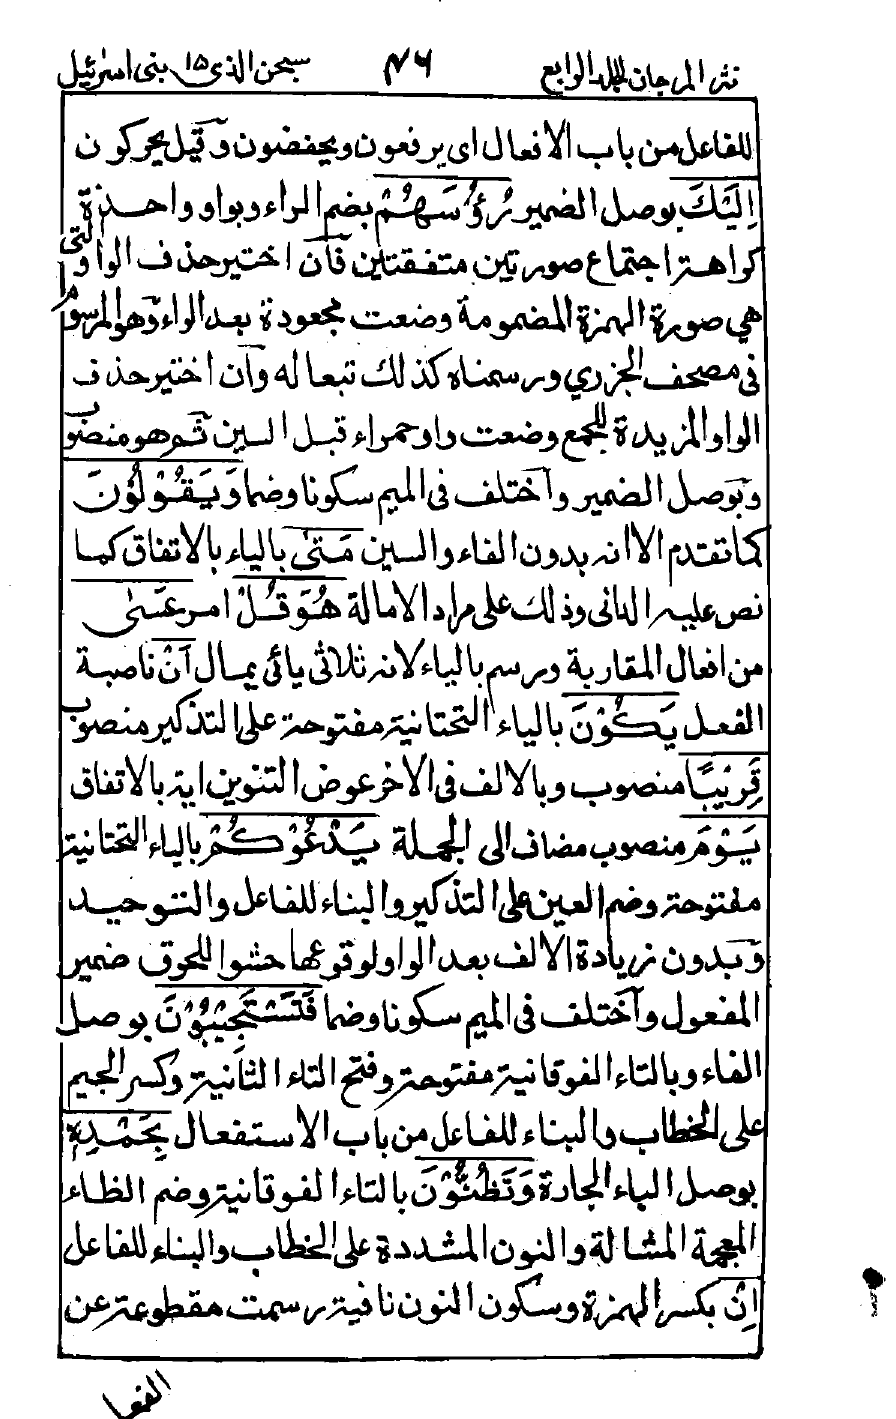 نثر المرجان الجلد الرابع ٧٦ سبحن الذی ١٥ بنی اسرٰئیل
للفاعل من باب الافعال ای یرفعون ویخفضون وقیل یحرکون
اِلَیْكَ بوصل الضمیر رُءُوْسَهُمْ بضم الراء وبواو واحدة
کراهة اجتماع صورتین متفقتین فان اختیر حذف الواو التی
هی صورة الهمزة المضمومة وضعت مجعودة بعد الراء وهو المرسوم
فی مصحف الجزری ورسمناه کذلك تبعا له وان اختیر حذف
الواو المزیدة للجمع وضعت واو حمراء قبل السین ثم هو منصوب
وبوصل الضمیر واختلف فی المیم سکونا وضما وَیَقُوْلُوْنَ
کما تقدم الا انه بدون الفاء والسین مَتٰی بالیاء بالاتفاق کما
نص علیه الدانی وذلك علی مراد الامالة هُوَ قُلْ امر عَسٰی
من افعال المقاربة ورسم بالیاء لانه ثلاثی یائی یمال اَنْ ناصبة
الفعل یَکُوْنَ بالیاء التحتانیة مفتوحة علی التذکیر منصوب
قَرِیْبًا منصوب وبالالف فی الاخر عوض التنوین ایة بالاتفاق
یَوْمَ منصوب مضاف الی الجملة یَدْعُوْکُمْ بالیاء التحتانیة
مفتوحة وضم العین علی التذکیر والبناء للفاعل والتوحید
وبدون زیادة الالف بعد الواو لوقوعها حشوا للحوق ضمیر
المفعول واختلف فی المیم سکونا وضما فَتَسْتَجِیْبُوْنَ بوصل
الفاء وبالتاء الفوقانیة مفتوحة وفتح التاء الثانیة وکسر الجیم
علی الخطاب والبناء للفاعل من باب الاستفعال بِحَمْدِهٖ
بوصل الباء الجارة وَتَظُنُّوْنَ بالتاء الفوقانیة وضم الظاء
المعجمة المشالة والنون المشددة علی الخطاب والبناء للفاعل
اِنْ بکسر الهمزة وسکون النون نافیة رسمت مقطوعة عن